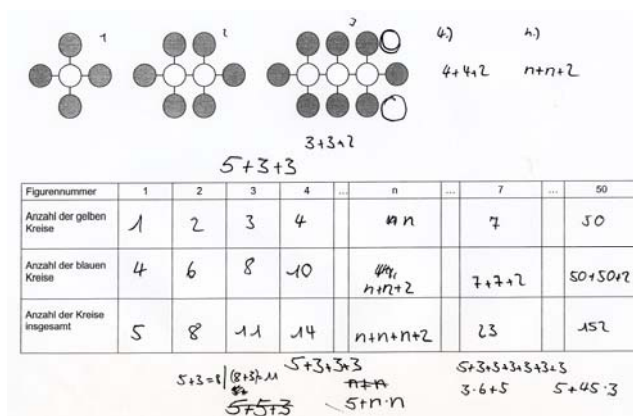 1 2 3 4.) n.)
4+4+2 n+n+2
3+3+2
5+3+3
Figurennummer 1 2 3 4 ... n ... 7 ... 50
Anzahl der gelben Kreise 1 2 3 4 n 7 50
Anzahl der blauen Kreise 4 6 8 10 n+n+2 7+7+2 50+50+2
Anzahl der Kreise insgesamt 5 8 11 14 n+n+n+2 23 152
5+3+3+3 5+3+3+3+3+3+3
5+3=8 (8+3)=11 n+n 3·6+5 5+45·3
5+5+3 5+n·n